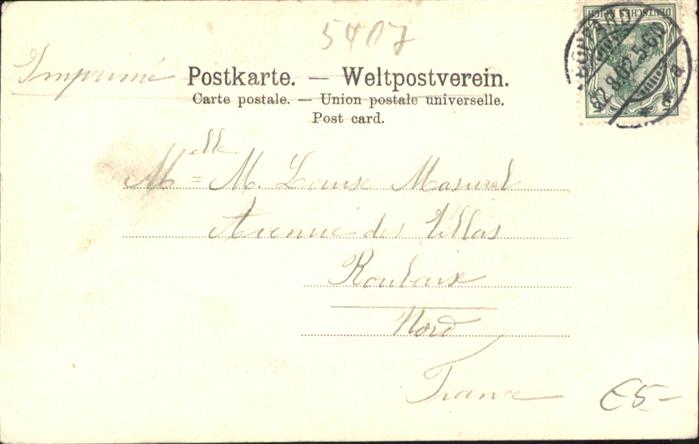 5407
Imprimé
Postkarte. — Weltpostverein.
Carte postale. — Union postale universelle.
Post card.
DEUTSCHES REICH
5
22.8.02.5-6N
a
Melle M. Louise Masurel
Avenue des Villas
Roubaix
Nord
France
€5-